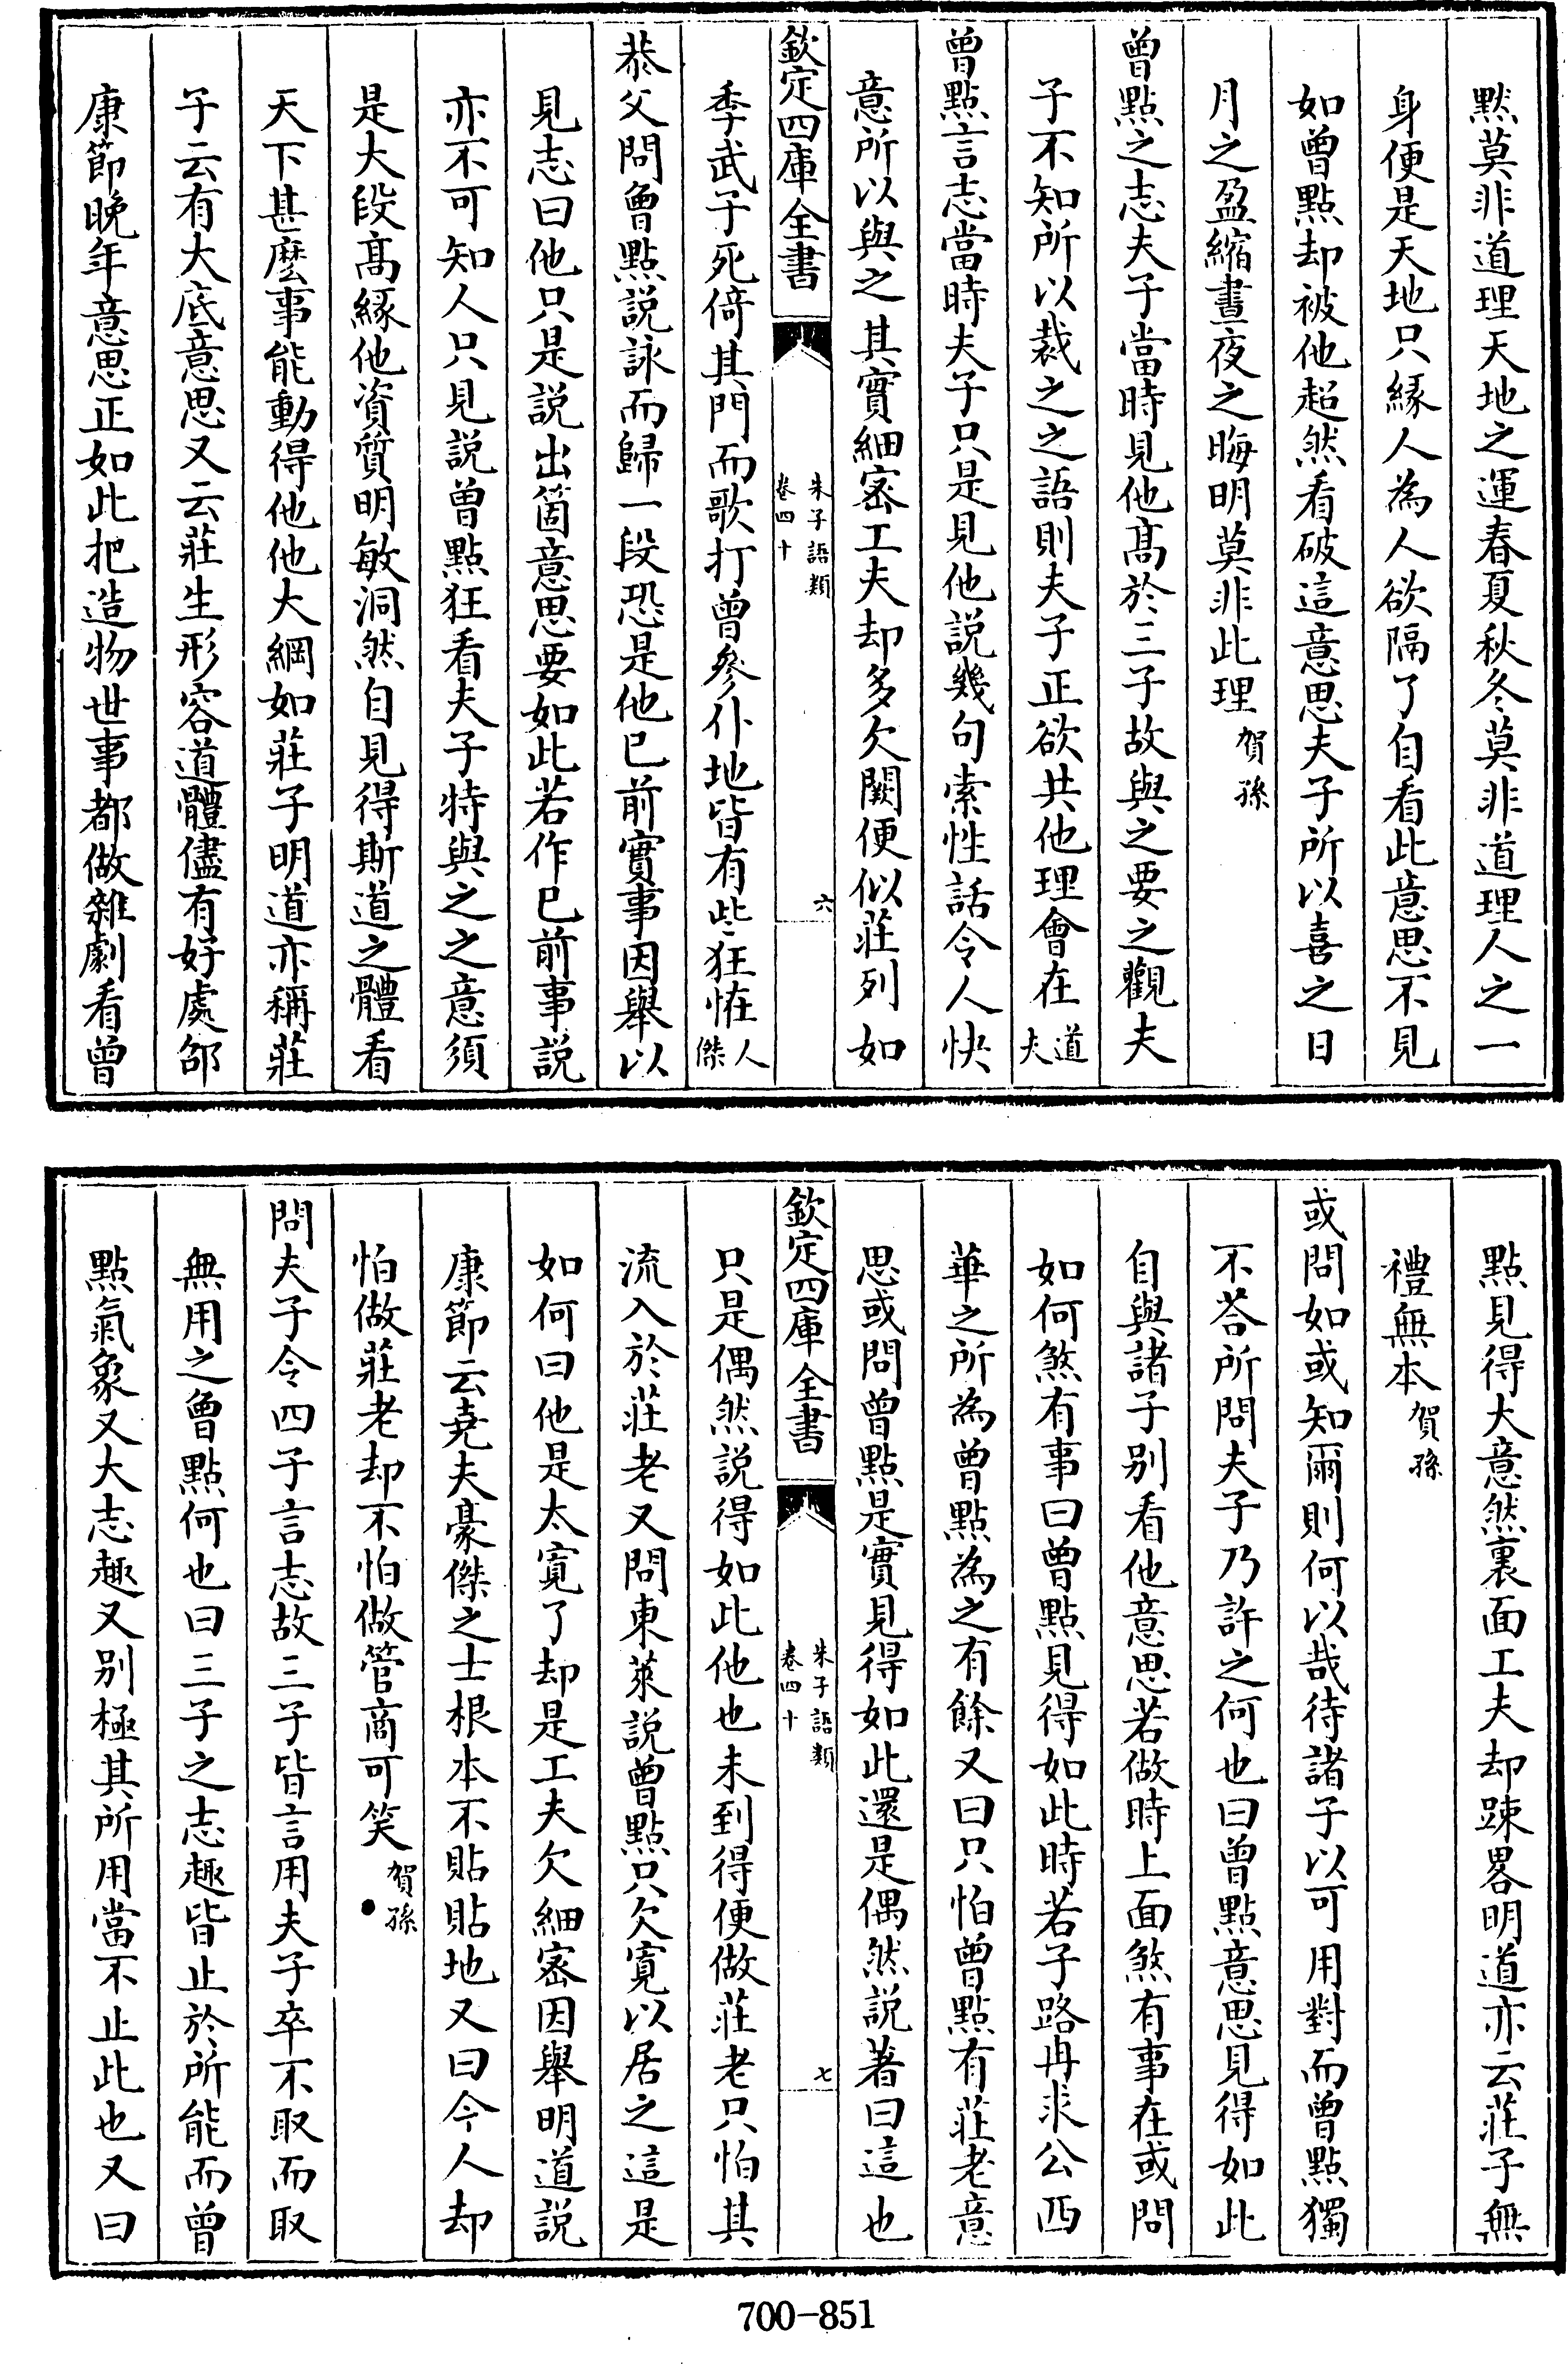 黙莫非道理天地之運春夏秋冬莫非道理人之一
身便是天地只縁人為人欲隔了自看此意思不見
如曾點却被他超然看破這意思夫子所以喜之日
月之盈縮晝夜之晦明莫非此理賀孫
曾點之志夫子當時見他髙於三子故與之要之觀夫
子不知所以裁之之語則夫子正欲共他理會在道夫
曾點言志當時夫子只是見他説幾句索性話令人快
意所以與之其實細宻工夫却多欠闕便似莊列如
欽定四庫全書
朱子語類
卷四十
六
季武子死倚其門而歌打曾參仆地皆有些狂恠人傑
恭父問曾點説詠而歸一段恐是他已前實事因舉以
見志曰他只是説出箇意思要如此若作已前事説
亦不可知人只見説曾點狂看夫子特與之之意須
是大段髙縁他資質明敏洞然自見得斯道之體看
天下甚麽事能動得他他大綱如莊子明道亦稱莊
子云有大底意思又云莊生形容道體儘有好處邵
康節晚年意思正如此把造物世事都做雜劇看曾
點見得大意然裏面工夫却踈畧明道亦云莊子無
禮無本賀孫
或問如或知爾則何以哉待諸子以可用對而曾點獨
不荅所問夫子乃許之何也曰曾點意思見得如此
自與諸子别看他意思若做時上面煞有事在或問
如何煞有事曰曾點見得如此時若子路冉求公西
華之所為曾點為之有餘又曰只怕曾點有莊老意
思或問曾點是實見得如此還是偶然説著曰這也
欽定四庫全書
朱子語類
卷四十
七
只是偶然説得如此他也未到得便做莊老只怕其
流入於莊老又問東萊説曾點只欠寛以居之這是
如何曰他是太寛了却是工夫欠細宻因舉明道説
康節云堯夫豪傑之士根本不貼貼地又曰今人却
怕做莊老却不怕做管商可笑賀孫
問夫子令四子言志故三子皆言用夫子卒不取而取
無用之曾點何也曰三子之志趣皆止於所能而曾
點氣象又大志趣又别極其所用當不止此也又曰
700-851